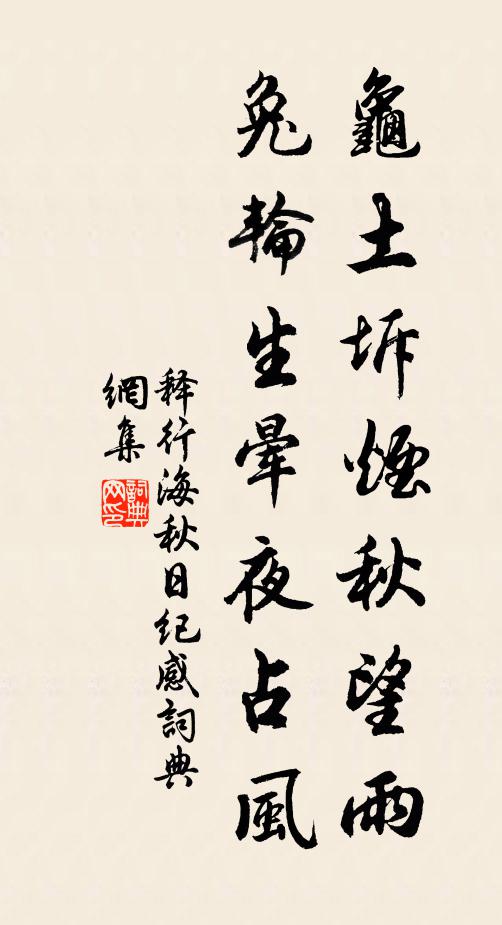 龜土坼煙秋望雨
兔輪生暈夜占風
释行海秋日纪感詞典
網集
詞典
网印